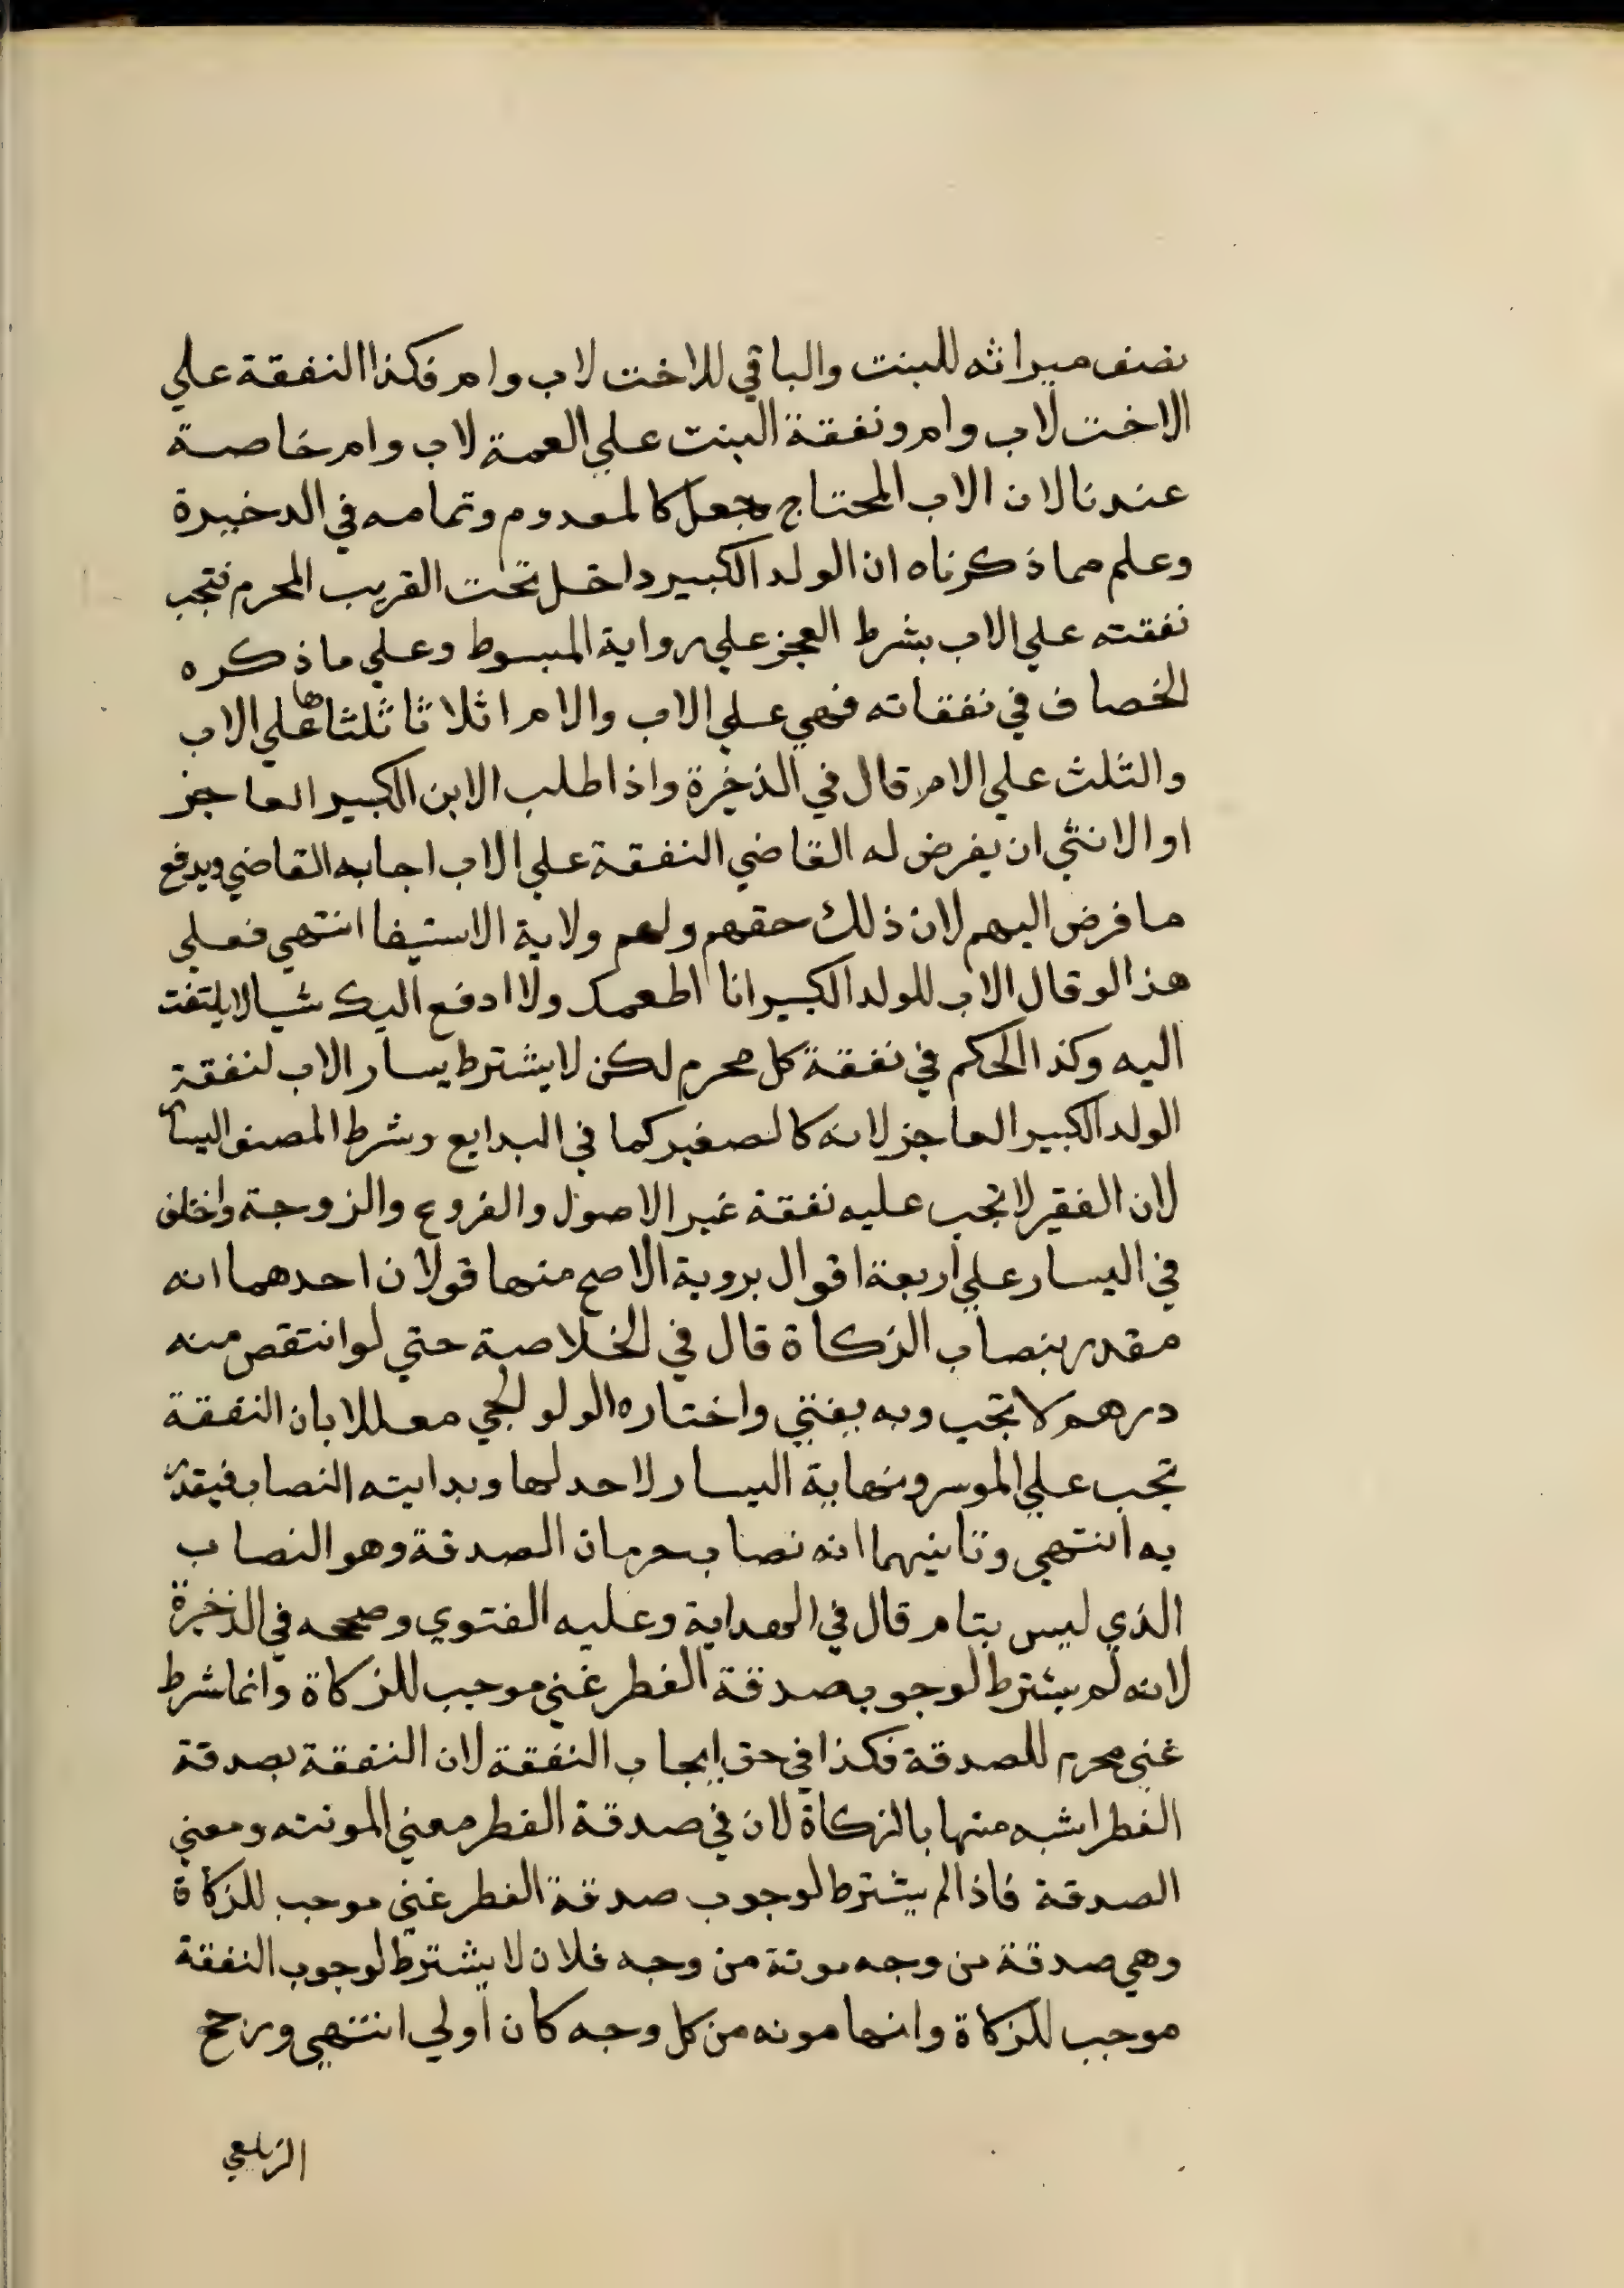 نصف ميراثه للبنت والباقي للاخت لاب وام فكذا النفقة علي
الاخت لاب وام ونفقة البنت علي العمة لاب وام خاصة
عندنا لان الاب المحتاج جعل كالمعدوم وتمامه في الدخيرة
وعلم مما ذكرناه ان الولد الكبير داخل تحت القريب المحرم فتجب
نفقته علي الاب بشرط العجز علي رواية المبسوط وعلي ما ذكره
الخصاف في نفقاته فهي علي الاب والام اثلاثا ثلثاها علي الاب
والثلث علي الام قال في الذخيرة واذا طلب الابن الكبير العاجز
او الانثي ان يفرض له القاضي النفقة علي الاب اجابه القاضي ويدفع
ما فرض اليهم لان ذلك حقهم ولهم ولاية الاستيفا انتهي فعلي
هذا لو قال الاب للولد الكبير انا اطعمك ولا ادفع اليك شيا لا يلتفت
اليه وكذا الحكم في نفقة كل محرم لكن لا يشترط يسار الاب لنفقة
الولد الكبير العاجز لانه كالصغير كما في البدايع وشرط المصنف اليسار
لان الفقير لا تجب عليه نفقة غير الاصول والفروع والزوجة واختلف
في اليسار علي اربعة اقوال بروية الاصح منها قولان احدهما انه
مقدر بنصاب الزكاة قال في الخلاصة حتي لو انتقص منه
درهم لا تجب وبه يفتي واختاره الولوالجي معللا بان النفقة
تجب علي الموسر ونهاية اليسار لا حد لها وبدايته النصاب فيقدر
به انتهي وثانيهما انه نصاب حرمان الصدقة وهو النصاب
الذي ليس بتام قال في الهداية وعليه الفتوي وصححه في الذخيرة
لانه لم يشترط لوجوب صدقة الفطر غني موجب للزكاة وانما شرط
غني محرم للصدقة فكذا في حق ايجاب النفقة لان النفقة بصدقة
الفطر اشبه منها بالزكاة لان في صدقة الفطر معني المونته ومعني
الصدقة فاذا لم يشترط لوجوب صدقة الفطر غني موجب للزكاة
وهي صدقة من وجه مونة من وجه فلان لا يشترط لوجوب النفقة
موجب للزكاة وانها مونه من كل وجه كان اولي انتهي ورجح
الزيلعي